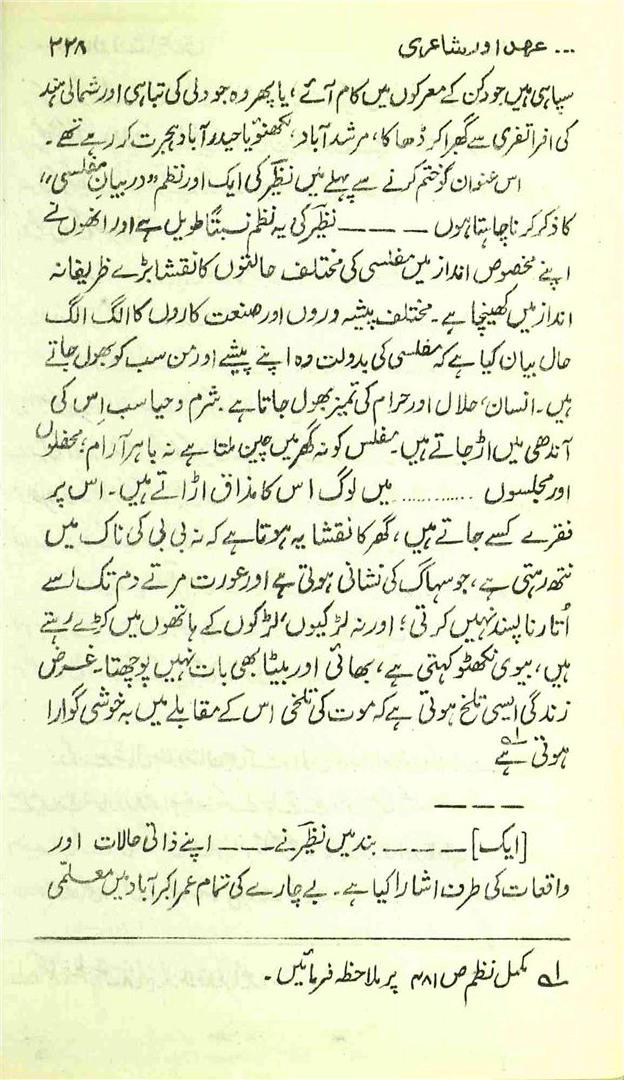 ... عہد اور شاعری ۲۲۸
سپاہی ہیں جو دکن کے معرکوں میں کام آئے، یا پھر وہ جو دلی کی تباہی اور شمالی ہند
کی افراتفری سے گھبرا کر ڈھاکا، مرشدآباد، لکھنؤ یا حیدرآباد ہجرت کر رہے تھے۔
اس عنوان کو ختم کرنے سے پہلے میں نظیرؔ کی ایک اور نظم ”در بیانِ مفلسی“
کا ذکر کرنا چاہتا ہوں ــ ــ ــ ــ نظیرؔ کی یہ نظم نسبتاً طویل ہے اور انھوں نے
اپنے مخصوص انداز میں مفلسی کی مختلف حالتوں کا نقشا بڑے ظریفانہ
انداز میں کھینچا ہے۔ مختلف پیشہ وروں اور صنعت کاروں کا الگ الگ
حال بیان کیا ہے کہ مفلسی کی بدولت وہ اپنے پیشے اور فن سب کو بھول جاتے
ہیں۔ انسان، حلال اور حرام کی تمیز بھول جاتا ہے۔ شرم و حیا سب اِس کی
آندھی میں اڑ جاتے ہیں۔ مفلس کو نہ گھر میں چین ملتا ہے نہ باہر آرام؛ محفلوں
اور مجلسوں ............ میں لوگ اس کا مذاق اڑاتے ہیں۔ اس پر
فقرے کسے جاتے ہیں، گھر کا نقشا یہ ہوتا ہے کہ نہ بی بی کی ناک میں
نتھ رہتی ہے، جو سہاگ کی نشانی ہوتی ہے اور عورت مرتے دم تک اسے
اُتارنا پسند نہیں کرتی؛ اور نہ لڑکیوں، لڑکوں کے ہاتھوں میں کڑے رہتے
ہیں، بیوی نکھٹو کہتی ہے، بھائی اور بیٹا بھی بات نہیں پوچھتا۔ غرض
زندگی ایسی تلخ ہوتی ہے کہ موت کی تلخی اس کے مقابلے میں بہ خوشی گوارا
ہوتی ہے۱؎
ــ ــ ــ
[ایک] ــ ــ ــ ــ بند میں نظیرؔ نے ــ ــ ــ اپنے ذاتی حالات اور
واقعات کی طرف اشارا کیا ہے۔ بے چارے کی تمام عمر اکبرآباد میں معلّمی
۱؎ مکمل نظم ص ۴۸۱ پر ملاحظہ فرمائیں۔